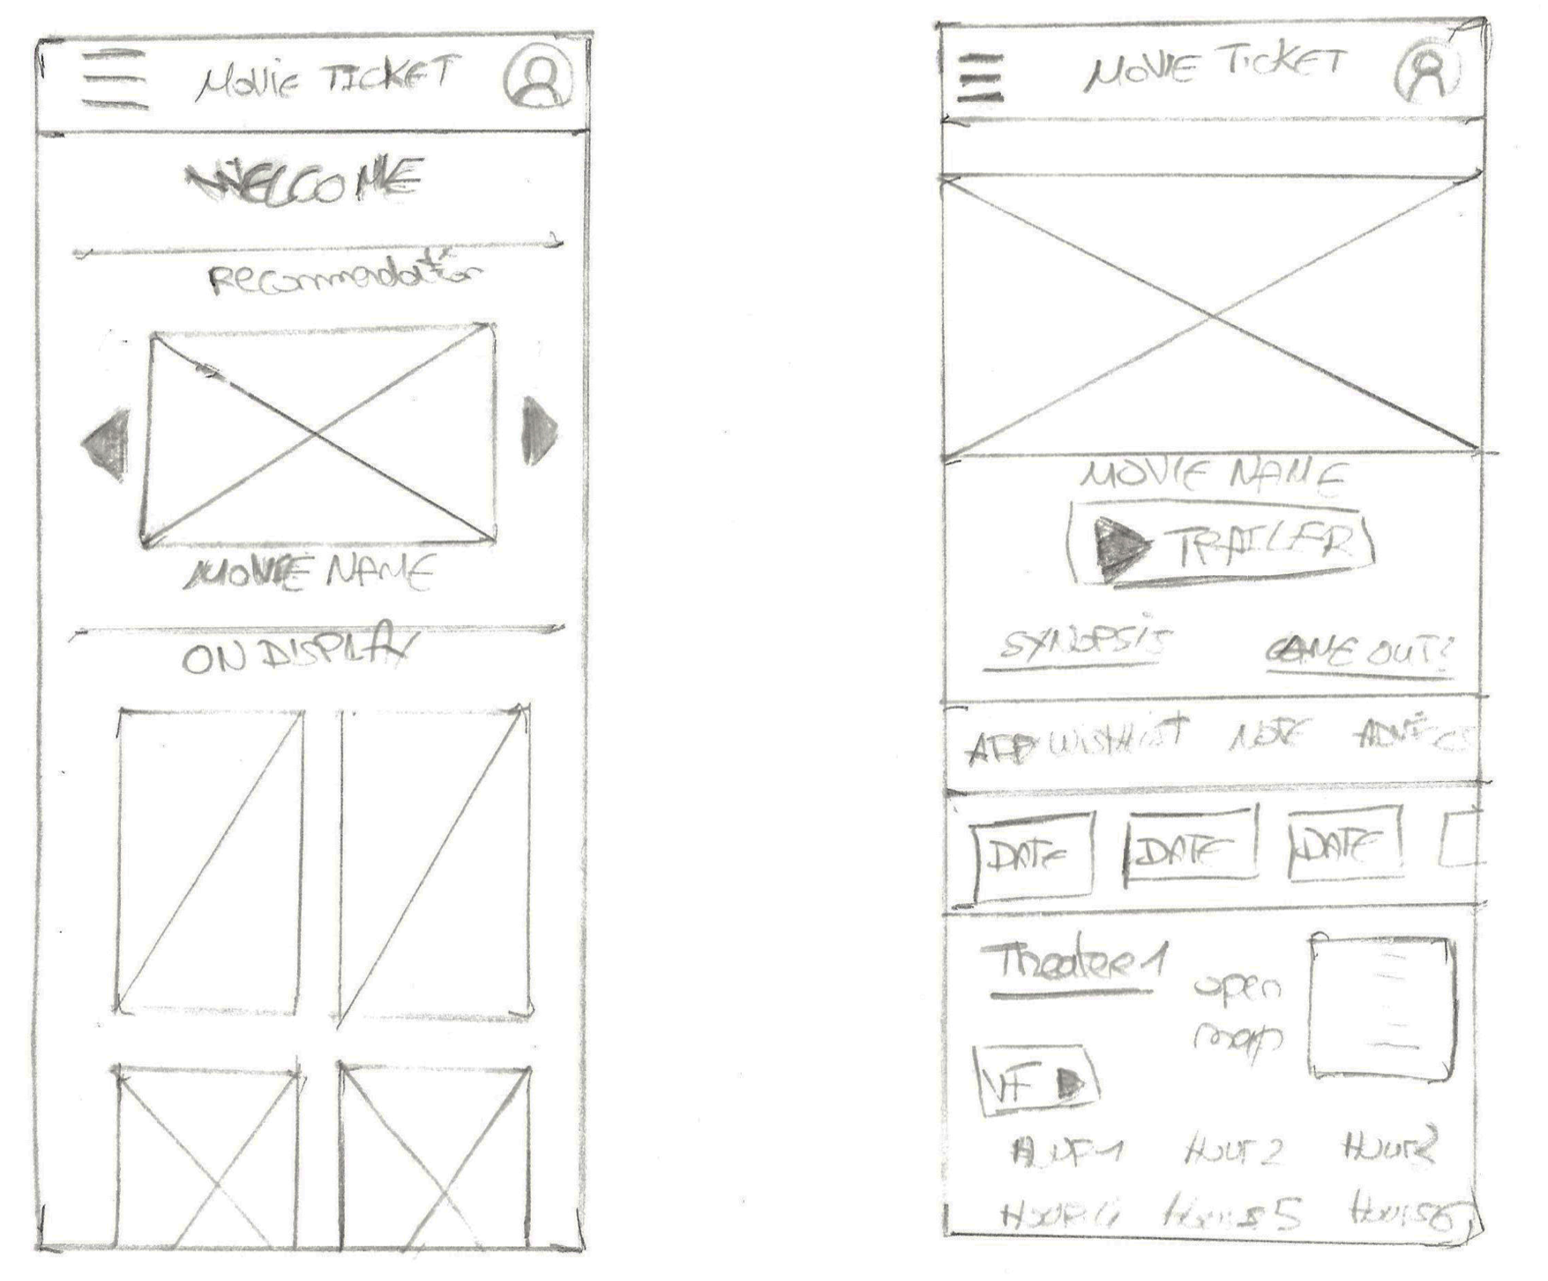 MOVIE TICKET
WELCOME
Recommendation
MOVIE NAME
ON DISPLAY
MOVIE TICKET
MOVIE NAME
TRAILER
SYNOPSIS CAME OUT?
WISHLIST NOTE
DATE DATE DATE
Theater 1
open
map
VF
HOUR 1 HOUR 2 HOUR 3
HOUR 4 HOUR 5 HOUR 6